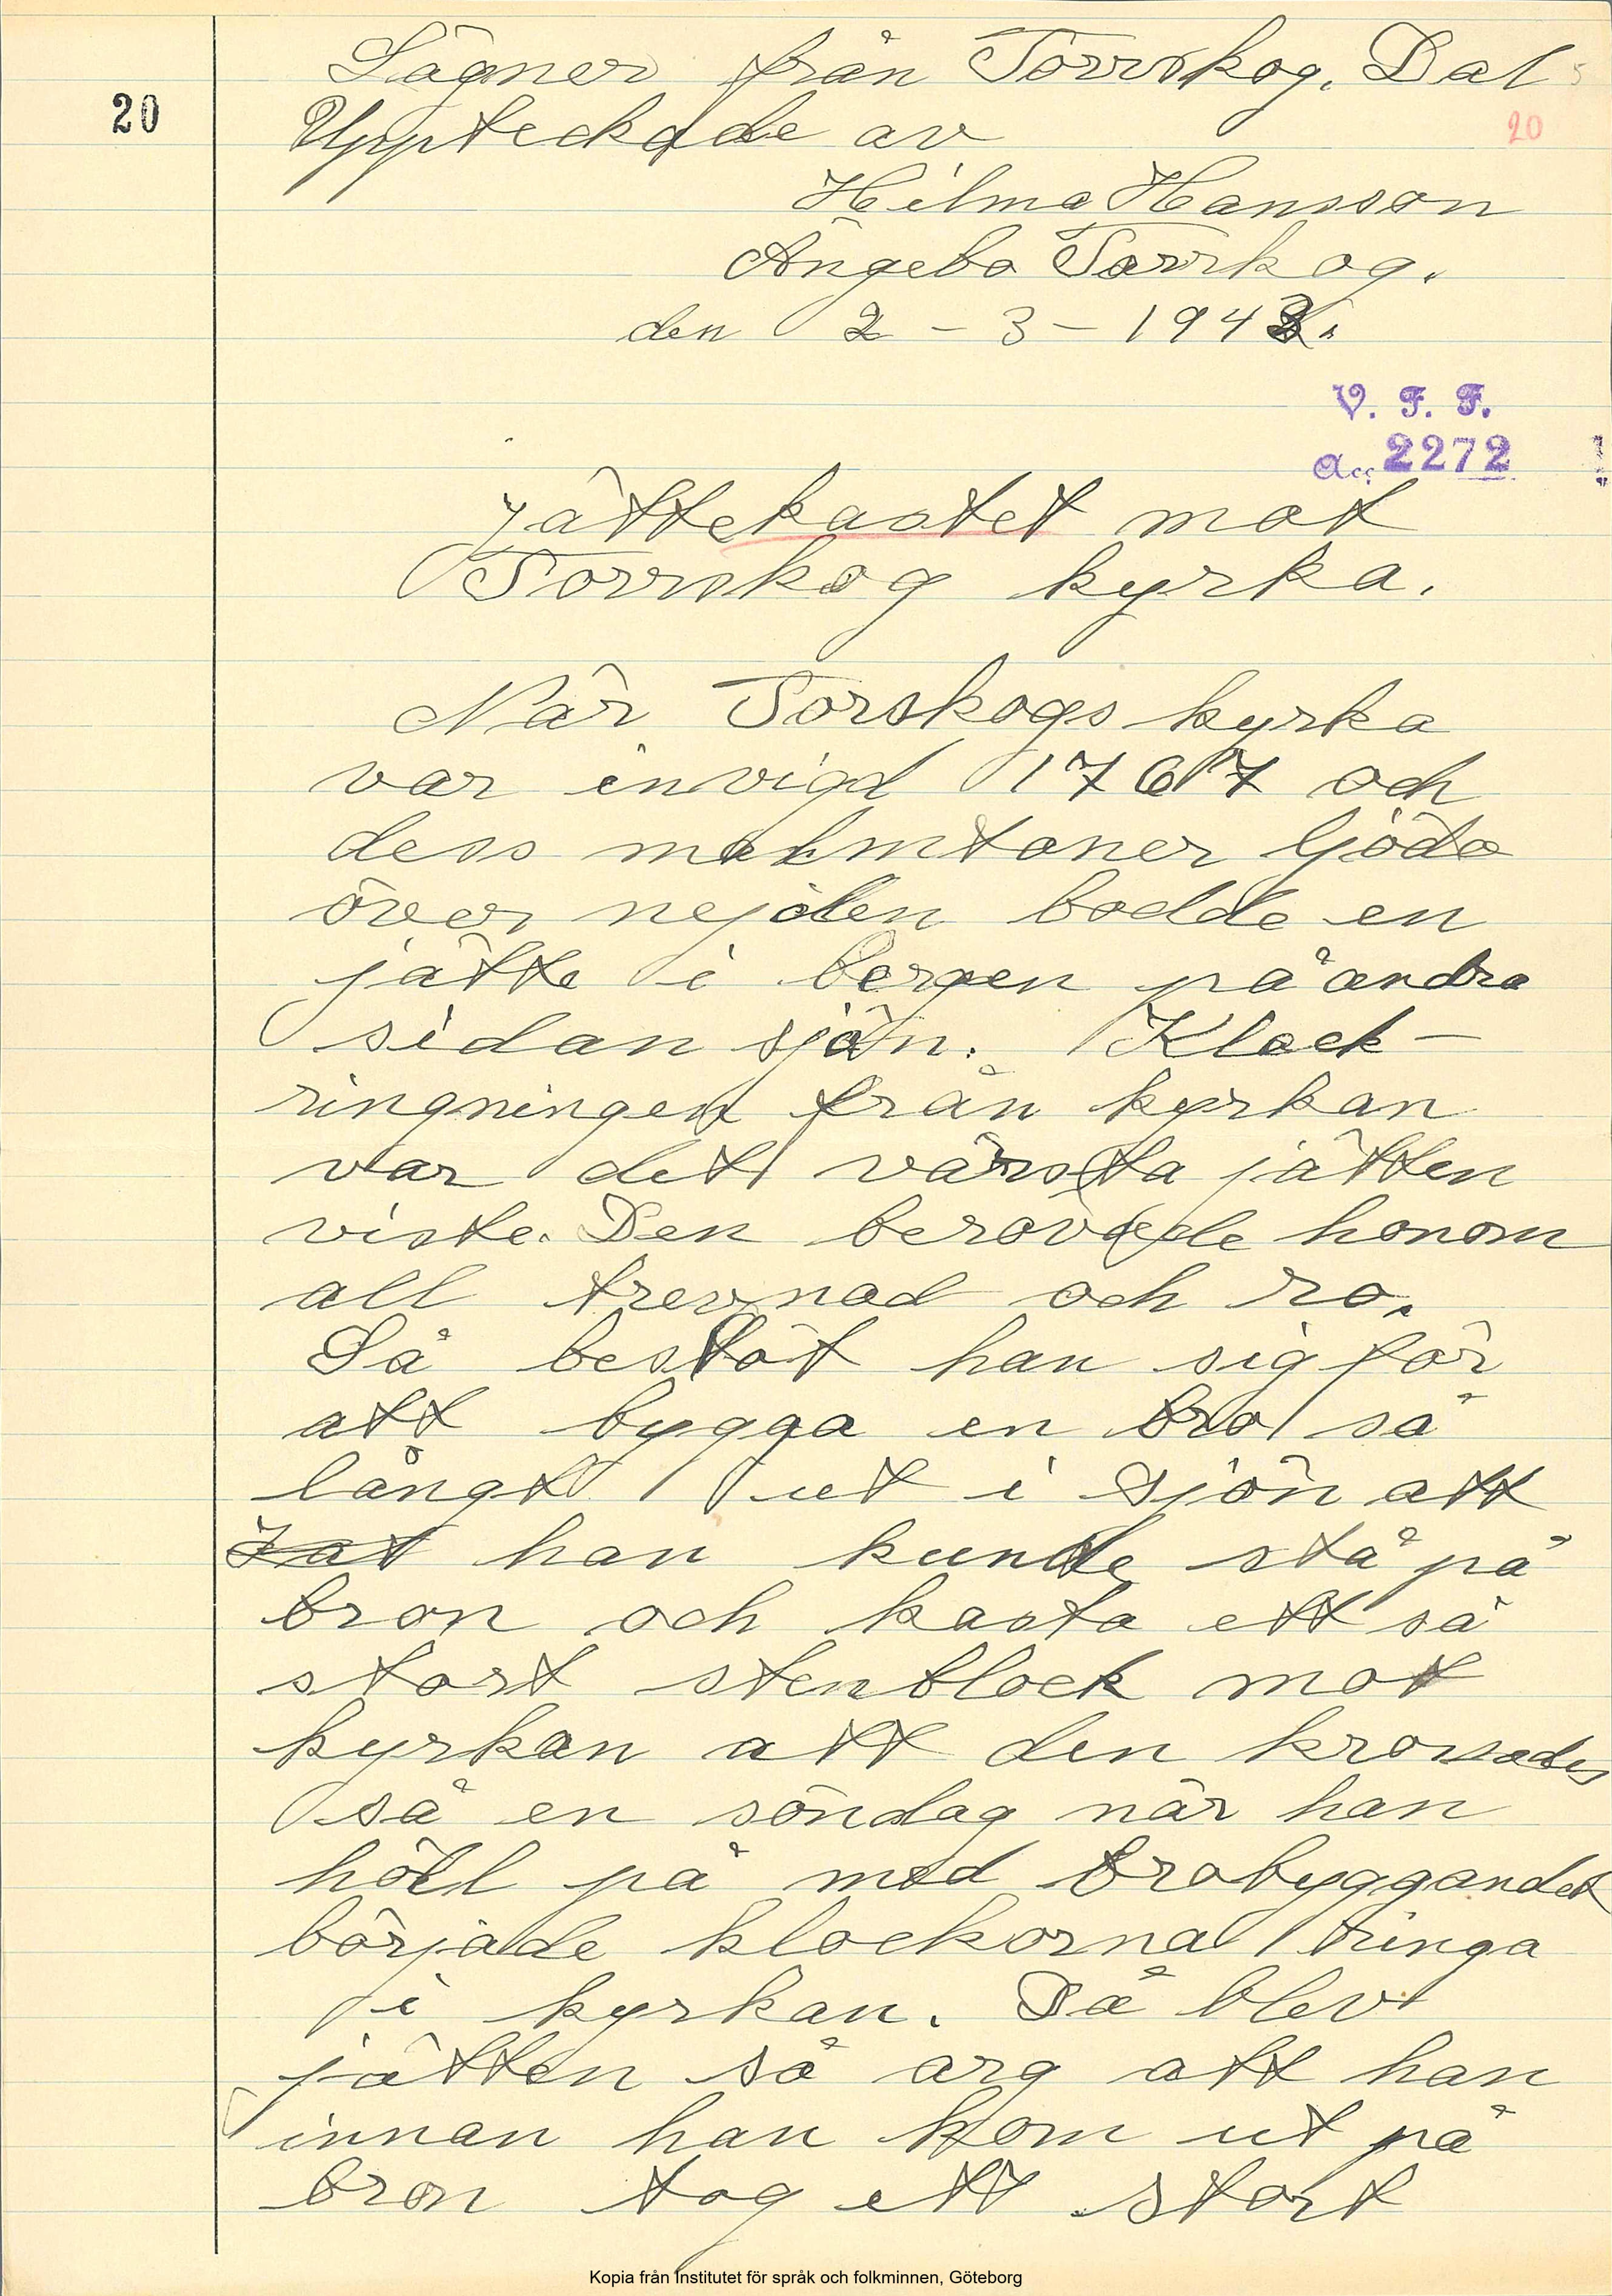 Sägner från Torrskog, Dals
20
Upptecknade av
20
Hilma Hansson
Ängebo Torrskog.
den 2 - 3 - 1942.
V. F. F.
Acc. 2272
jättekastet mot
Torrskog kyrka.
När Torskogs kyrka
var invigd 1767 och
dess malmtoner ljöda
över nejden bodde en
jätte i bergen på andra
sidan sjön. Klock-
ringningen från kyrkan
var det värsta jätten
viste. Den berövade honom
all trevnad och ro.
Så beslöt han sig för
att bygga en bro så
långt ut i sjön att
han kunde stå på
bron och kasta ett så
stort stenblock mot
kyrkan att den krossades
så en söndag när han
höll på med brobyggandet
började klockorna ringa
i kyrkan. Då blev
jätten så arg att han
innan han kom ut på
bron tog ett stort
Kopia från Institutet för språk och folkminnen, Göteborg